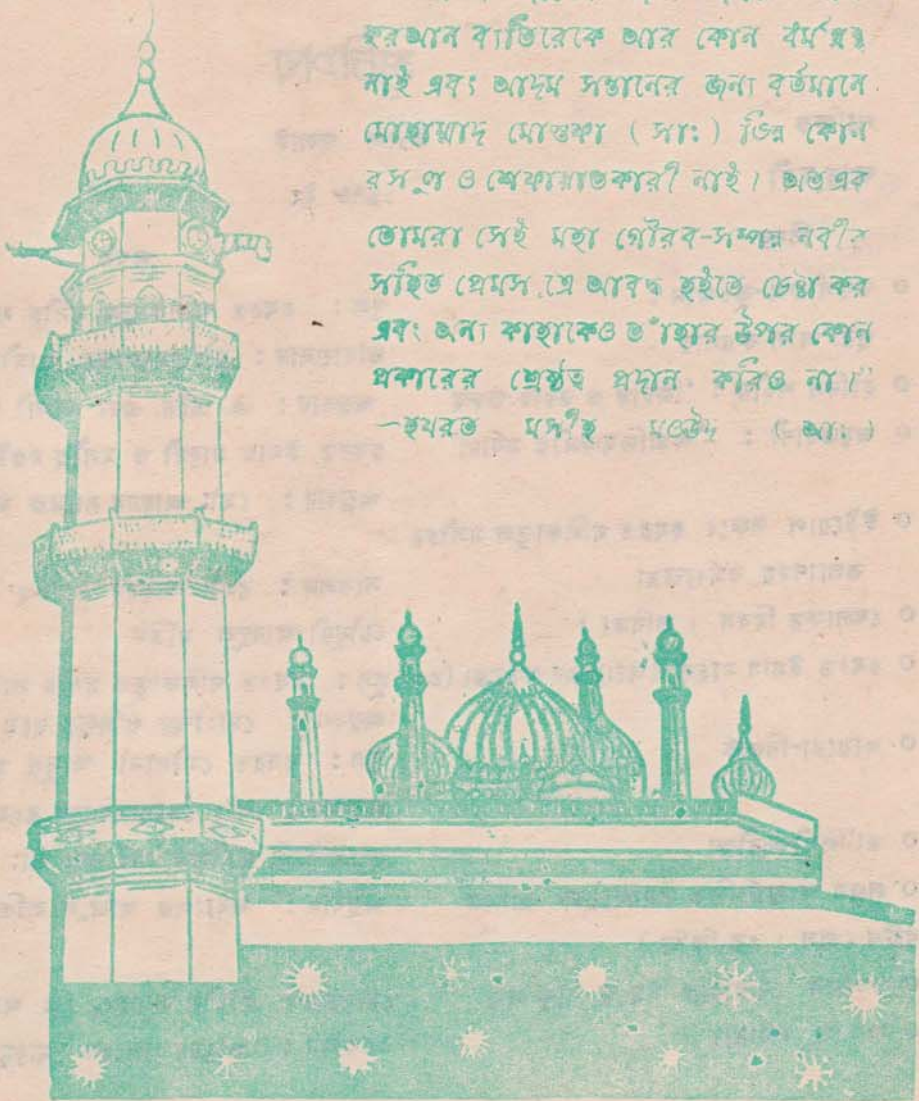 হরআন ব্যতিরেকে আর কোন ধর্ম গ্রন্থ
নাই এবং আদম সন্তানের জন্য বর্তমানে
মোহাম্মাদ মোস্তফা ( সাঃ ) ভিন্ন কোন
রসূল ও শেফায়াতকারী নাই। অতএব
তোমরা সেই মহা গৌরব-সম্পন্ন নবীর
সহিত প্রেমসূত্রে আবদ্ধ হইতে চেষ্টা কর
এবং অন্য কাহাকেও তাঁহার উপর কোন
প্রকারের শ্রেষ্ঠত্ব প্রদান করিও না।"
—হযরত মসীহ মওউদ ( আঃ )